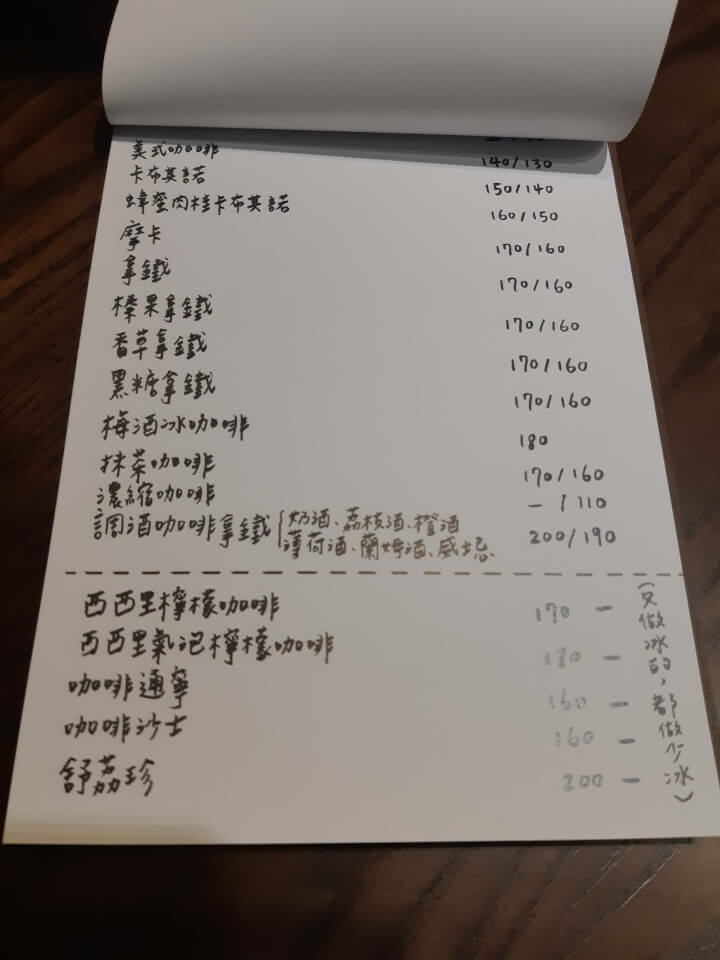 美式咖啡 140/130
卡布其諾 150/140
蜂蜜肉桂卡布其諾 160/150
摩卡 170/160
拿鐵 170/160
榛果拿鐵 170/160
香草拿鐵 170/160
黑糖拿鐵 170/160
梅酒冰咖啡 180
抹茶咖啡 170/160
濃縮咖啡 - /110
調酒咖啡拿鐵 奶酒、荔枝酒、橙酒 200/190
薄荷酒、蘭姆酒、威士忌
西西里檸檬咖啡 170 -
西西里氣泡檸檬咖啡 180 -
咖啡通寧 160 -
咖啡沙士 160 -
舒荔珍 200 -
(只做冰的,都做少冰)